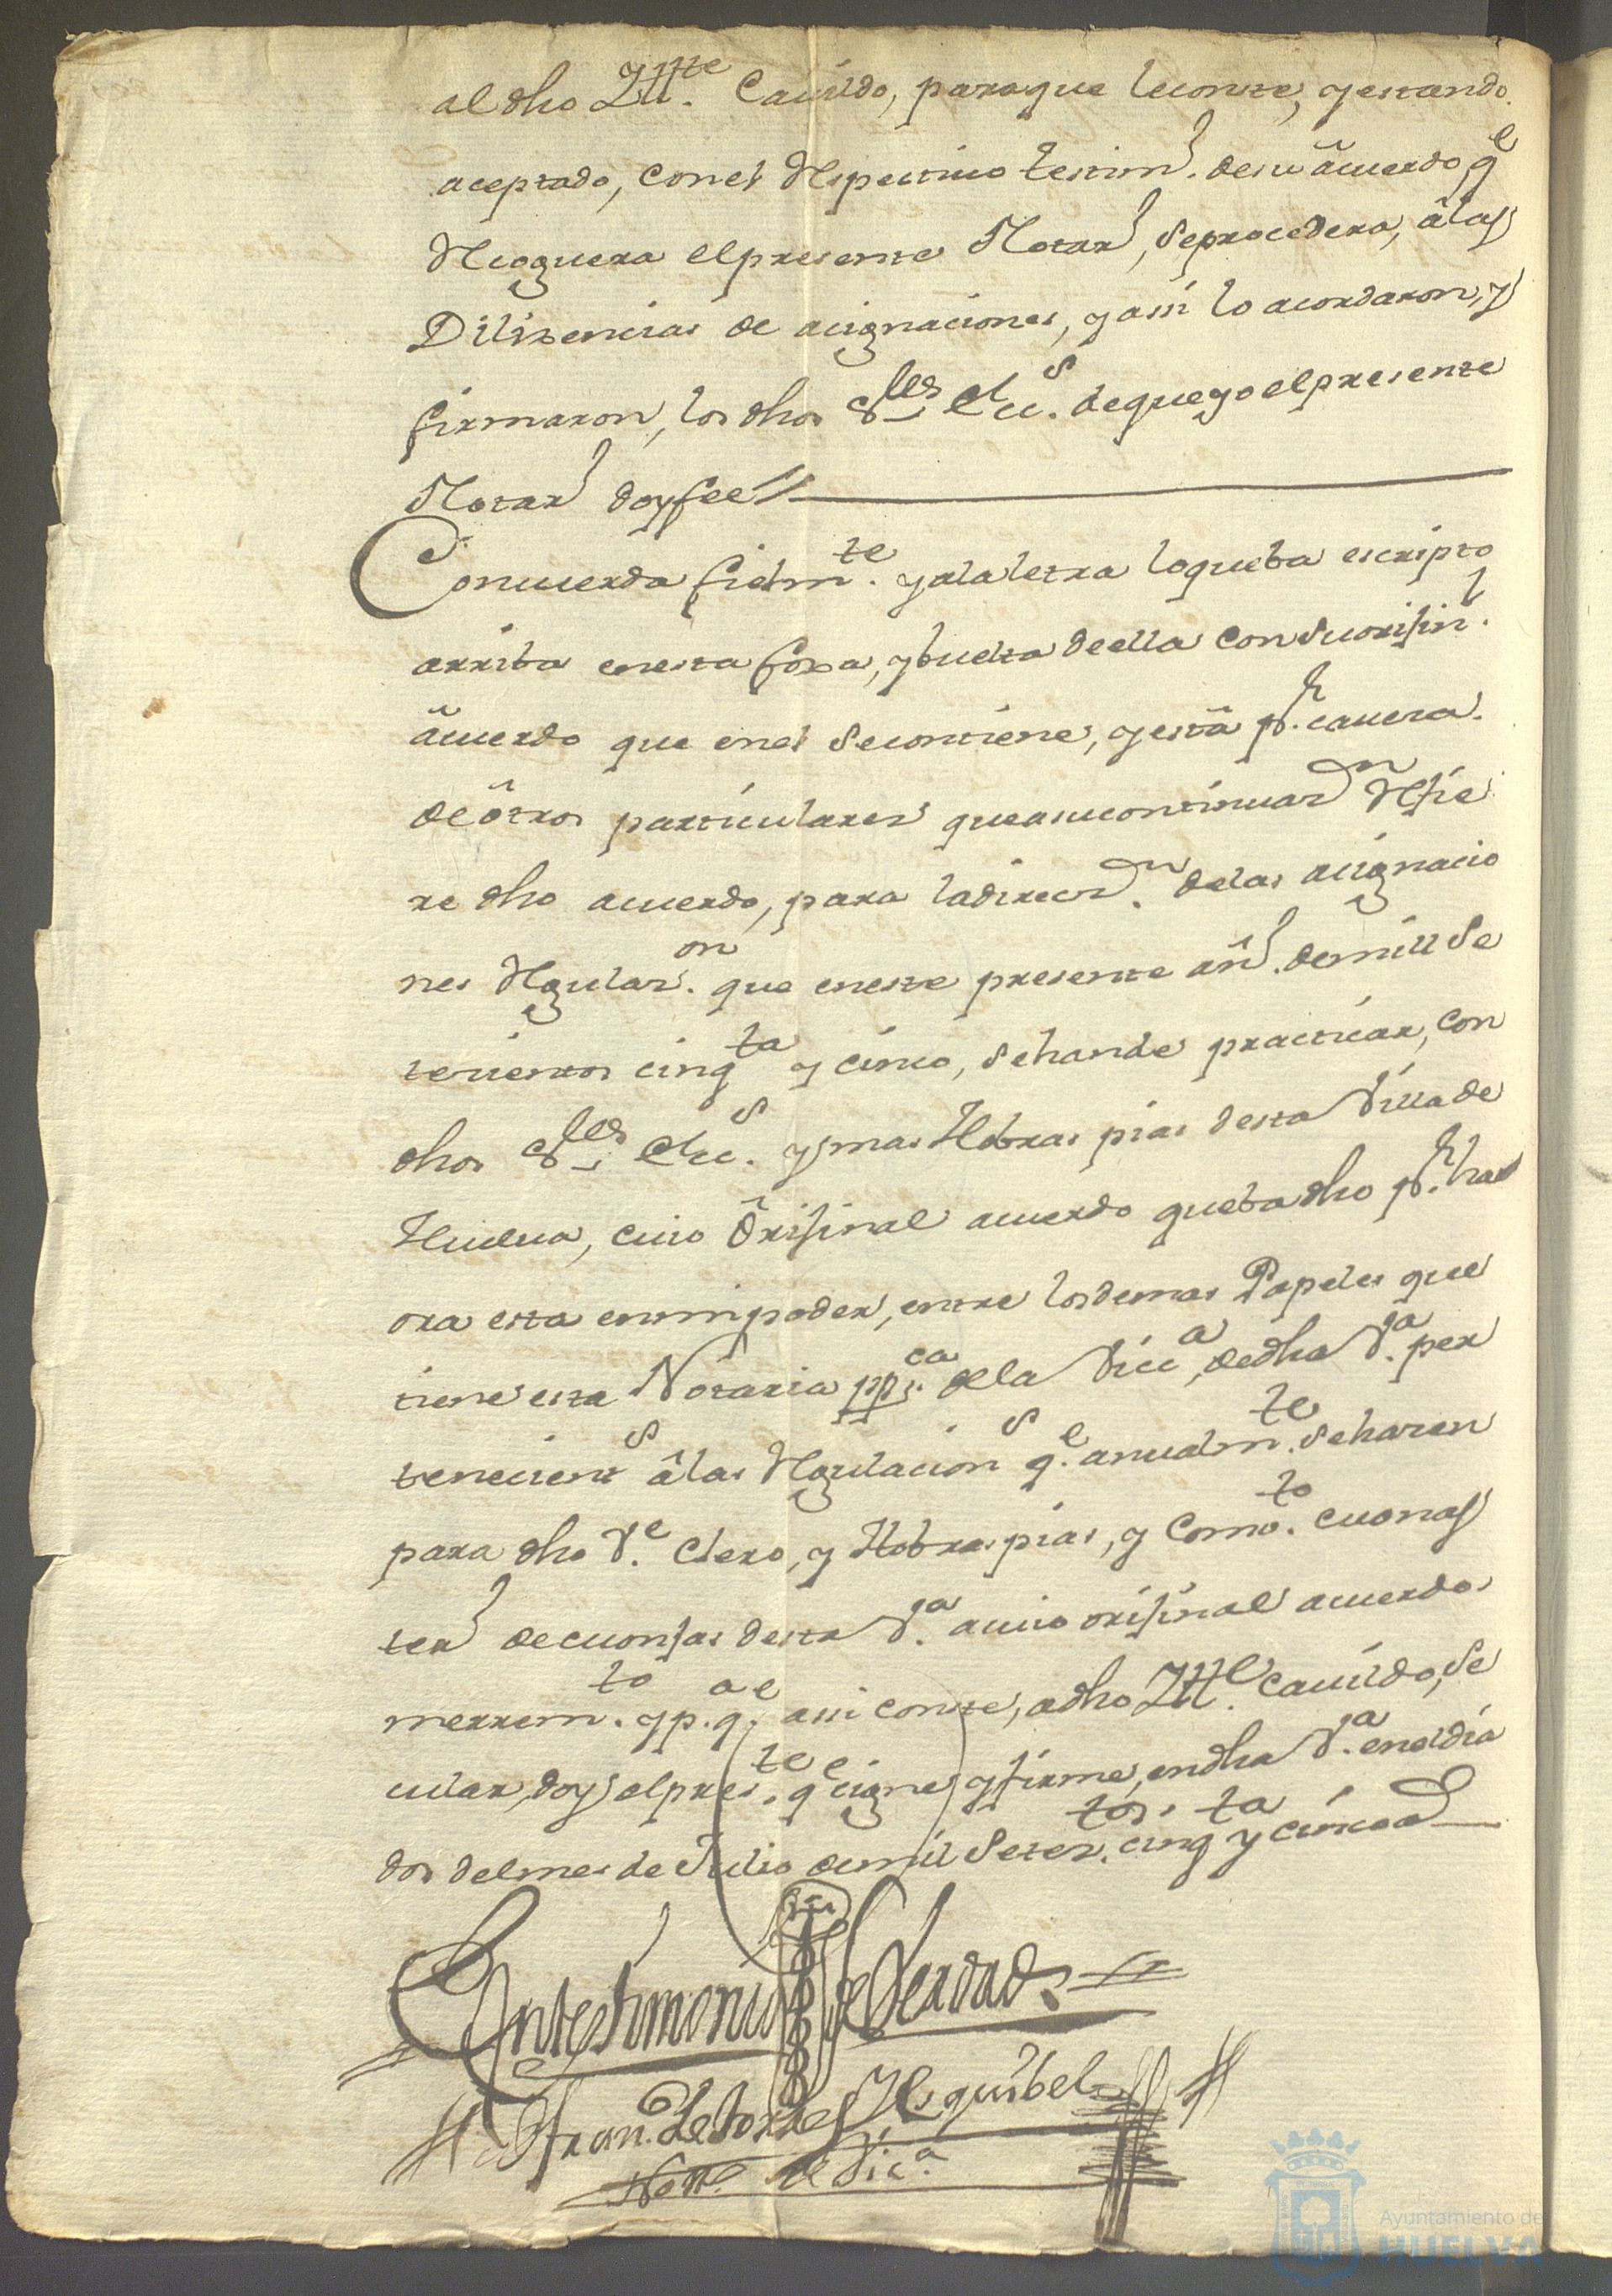 al dho Iltte. Cauildo, para que le conste, y estando
aceptado, con el Respectiuo testimo. de su acuerdo qe
Recoguera el presente Notaro, se procedera, â las
Dilixencias de asignaciones, y assi lo acordaron, y
firmaron, los dhos Sres Ecc.s de que yo el presente
Notaro doy fee //
Concuerda fielmte. y a la letra lo que ba escripto
arriba en esta foxa, y buelta de ella con su orijinl.
âcuerdo que en el se contiene, y estâ pr. caueza.
de ôtros particulares que a su continuazn Refie
re dho acuerdo, para la direczn. de las asignacio
nes Regularon. que en este presente año. de mill se
tecientos cinqta y cinco, se han de practicar, con
dhos Sres Ecc.s y mas Hobras pias desta Villa de
Huelua, cuio Ôrijinal acuerdo que ba dho pr. ha
ora esta en mi poder, entre los demas Papeles que
tiene esta Notaria ppca. de la Vica, de dha Va. per
tenecients â las Regulacions qe. anualmte. se hazen
para dho Ve. Clero, y Hobras pias, y Comto.
de desta Va. a cuio orijinal acuerdo.
me rremto. y pa. qe. assi conste, a dho Iltte. Cauildo, se
cular, doy el preste. qe signe y firme, en dha Va. en el dia
dos del mes de Julio de mil seteztos. cinqta y cinco as
En testimonio de Verdad
Fran. de torres Esquibel
Notro. de Vica.
Ayuntamiento de
HUELVA